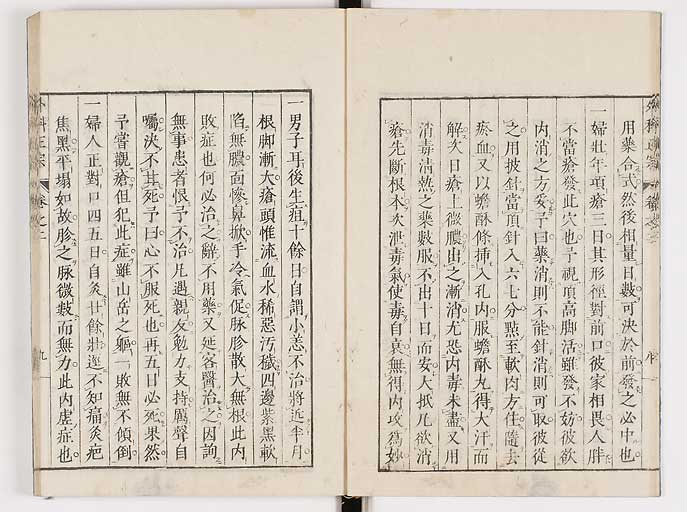 用藥合式然後相量日數可決於前發之必中也
一婦壯年項瘡三日其形徑對前口彼家相畏人胖
不當瘡發此穴也予視項高脚活雖發不妨彼欲
内消之方妥予曰藥消則不能針消則可取彼從
之用披針當頂針入六七分點至軟肉方住隨去
瘀血又以蟾酥條插入孔内服蟾酥丸得大汗而
解次日瘡上微膿出之漸消尤恐内毒未盡又用
消毒清熱之藥數服不出十日而安大抵凡欲消
瘡先斷根本次泄毒氣使毒自衰無得内攻爲妙
外科正宗 卷之二 九
一男子耳後生疽十餘日自謂小恙不治將近半月
根脚漸大瘡頭惟流血水稀惡汚穢四邊紫黑軟
陷無膿面慘鼻掀手冷氣促脉胗散大無根此内
敗症也何必治之辭不用藥又延客醫治之因詢
無事患者恨予不治凡遇親友勉力支持厲聲自
囑決不其死予曰心不服死也再五日必死果然
予嘗觀瘡但犯此症雖山岳之軀一敗無不傾倒
一婦人正對口四五日自灸廿餘壯逕不知痛灸疤
焦黑平塌如故胗之脉微數而無力此内虚症也